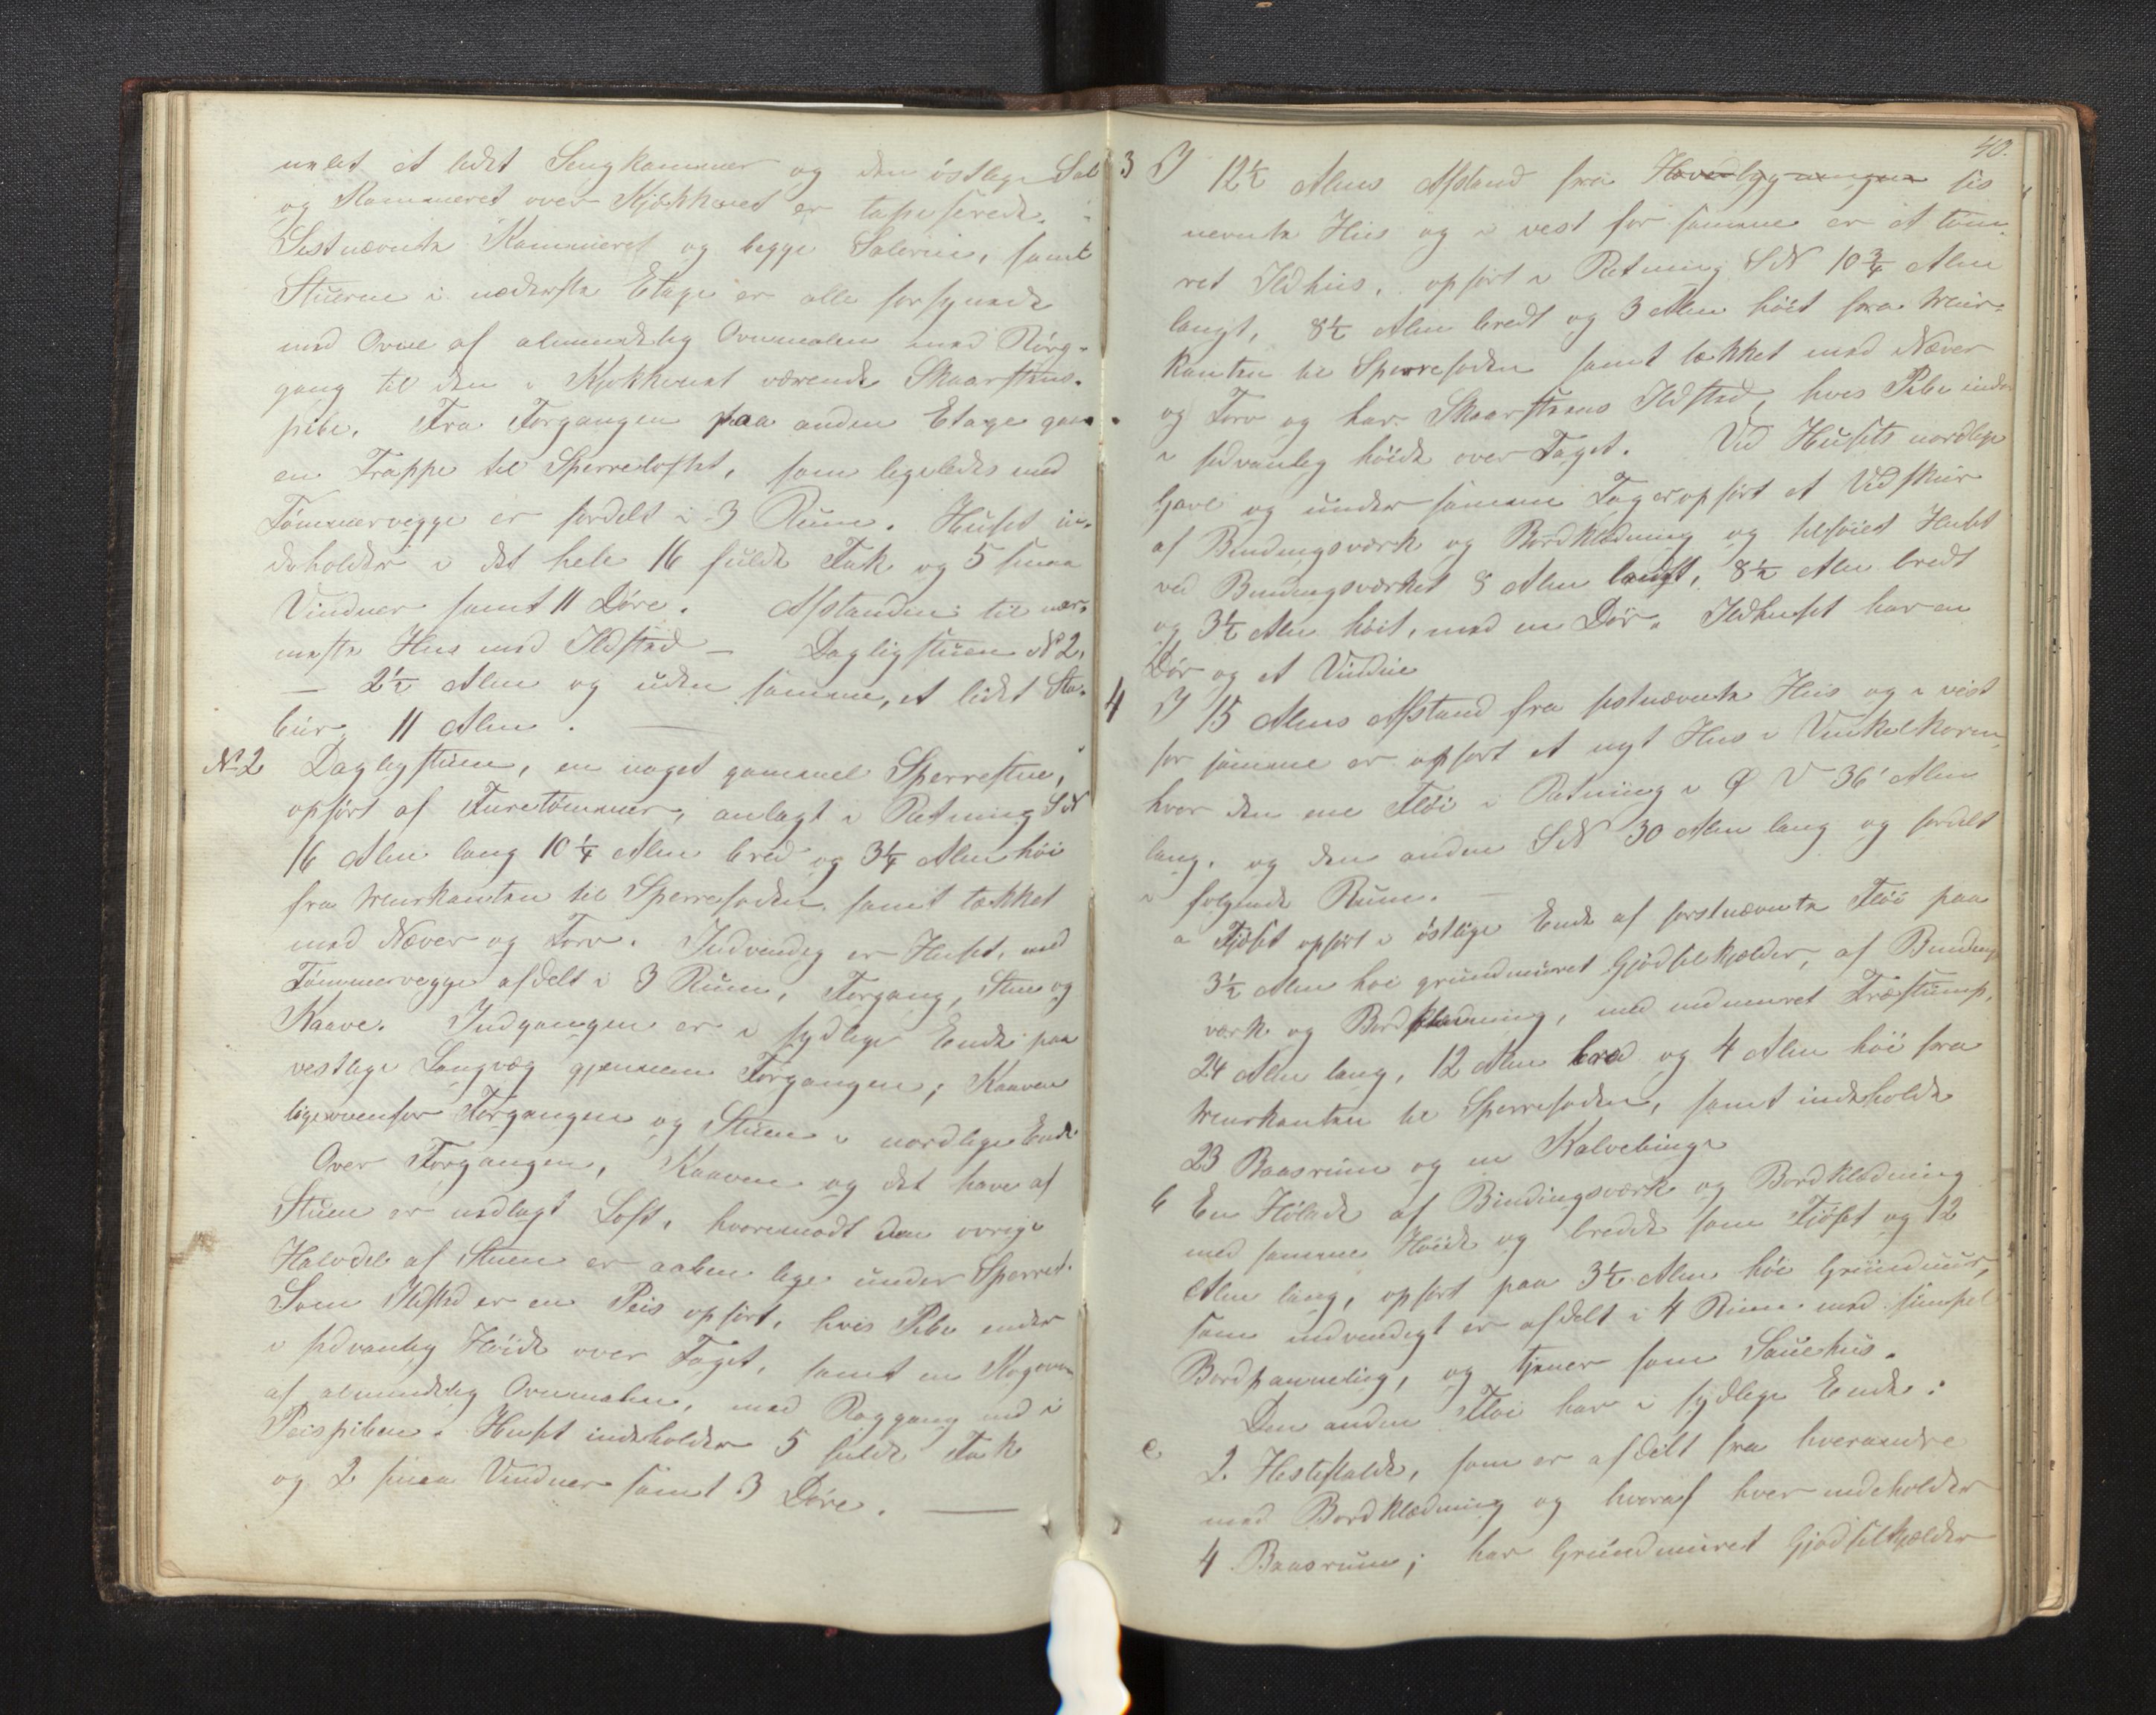 målet et lidet Sengkammer og den östlige Sal
og Kammeret over Kjøkkenet er tapeserede.
Sistnævnte Kammeret og begge Salerne, samt
Stuerne i nederste Etage er alle forsynede
med Ovne af almindelig Ovnmalm med Rörg-
gang til den i Kjøkkenet værende Skaarstens-
pibe. Fra Forgangen paa anden Etage gaar
en Trappe til Sperreloftet, som ligeledes med
Tömmervegge er fordelt i 3 Rum. Huset in-
deholder i det hele 16 fulde Fak og 5 smaa
Vinduer samt 11 Döre. Afstanden til nær-
meste Hus med Ildsted – Dagligstuen No 2,
– 2½ Alen og uden samme, et lidet Sta-
bur, 11 Alen. —
No 2 Dagligstuen, en noget gammel Sperrestue,
opfört af Furetömmer, anlagt i Retning SN
16 Alen lang 10¼ Alen bred og 3¼ Alen höi
fra Murkanten til Sperrefoden samt tækket
med Næver og Torv. Indvendig er Huset, med
Tömmervegge afdelt i 3 Rum, Forgang, Stue og
Kaave. Indgangen er i sydlige Ende paa
vestlige Langvæg gjennem Forgangen; Kaaven
ligeovenfor Forgangen og Stuen i nordlige Ende
Over Forgangen, Kaaven og det halve af
Stuen er nedlagt Loft, hvoremodt den övrige
Halvdel af Stuen er aaben lige under Sperret.
Som Ildsted er en Peis opfört, hvis Pibe ender
i sedvanlig Höide over Taget, samt en Kogeovn
af almindelig Ovnmalm, med Röggang ind i
Peispiben. Huset indeholder 5 fulde Fak
og 2 smaa Vinduer samt 3 Döre. —
40.
3 I 12½ Alens Afstand fra Hovedbygningen sis
nevnte Hus og i vest for samme er et töm-
ret Ildhus, opfört i Retning SN 10¾ Alen
langt, 8½ Alen bredt og 3 Alen höit fra Mur-
kanten til Sperrefoden samt tækket med Næver
og Torv og har Skaarstens Ildsted, hvis Pibe ender
i sedvanlig höide over Taget. Ved Husets nordlige
Gavl og under samme Tag er opfört et Vedskur
af Bindingsværk og Bordklædning og tilföiet Huset
ved Bindingsværket 8 Alen langt, 8½ Alen bredt
og 3½ Alen höit, med en Dör. Ildhuset har en
Dör og et Vindue
4 I 15 Alens Afstand fra sistnævnte Hus og i vest
for samme er opfört et nyt Hus i Vinkelform,
hvor den ene Flöi i Retning i Ø V 36 Alen
lang, og den anden SN 30 Alen lang og fordelt
i folgende Rum. —
a Fjöset opfört i östlige Ende af forstnævnte Flöi paa
3½ Alen höi grundmuret Gjödselkjælder, af Bindings
værk og Bordklædning, med indmuret Træstump,
24 Alen lang, 12 Alen bred og 4 Alen höi fra
Murkanten til Sperrefoden, samt indeholde
23 Baasrum og en Kalvebinge
b En Hölade af Bindingsværk og Bordklædning
med samme Höide og bredde som Fjöset og 12
Alen lang, opfört paa 3½ Alen höi Grundmur,
som indvendigt er afdelt i 4 Rum med simpel
Bordpanneling, og tjener som Sauehus.
Den anden Flöi har i sydlige Ende:
c 2 Hestestalde, som er afdelt fra hverandre
med Bordklædning og hvoraf hver indeholder
4 Baasrum; har Grundmuret Gjödselkjælder